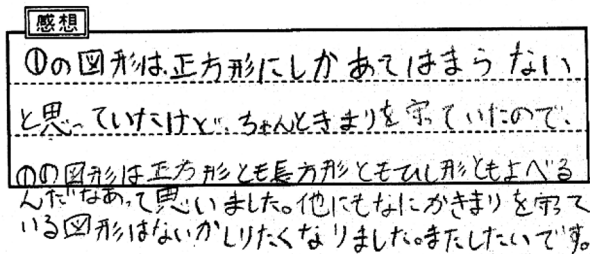 感想
①の図形は正方形にしかあてはまらない
と思っていたけど、ちゃんときまりを守っていたので、
①の図形は正方形とも長方形ともひし形ともよべる
んだなあって思いました。他にもなにかきまりを守って
いる図形はないかしりたくなりました。またしたいです。